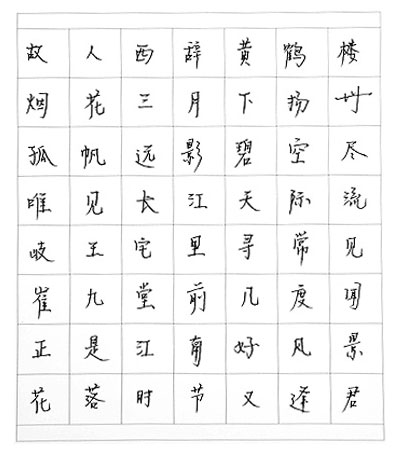 故人西辞黄鹤楼
烟花三月下扬州
孤帆远影碧空尽
唯见长江天际流
岐王宅里寻常见
崔九堂前几度闻
正是江南好风景
花落时节又逢君